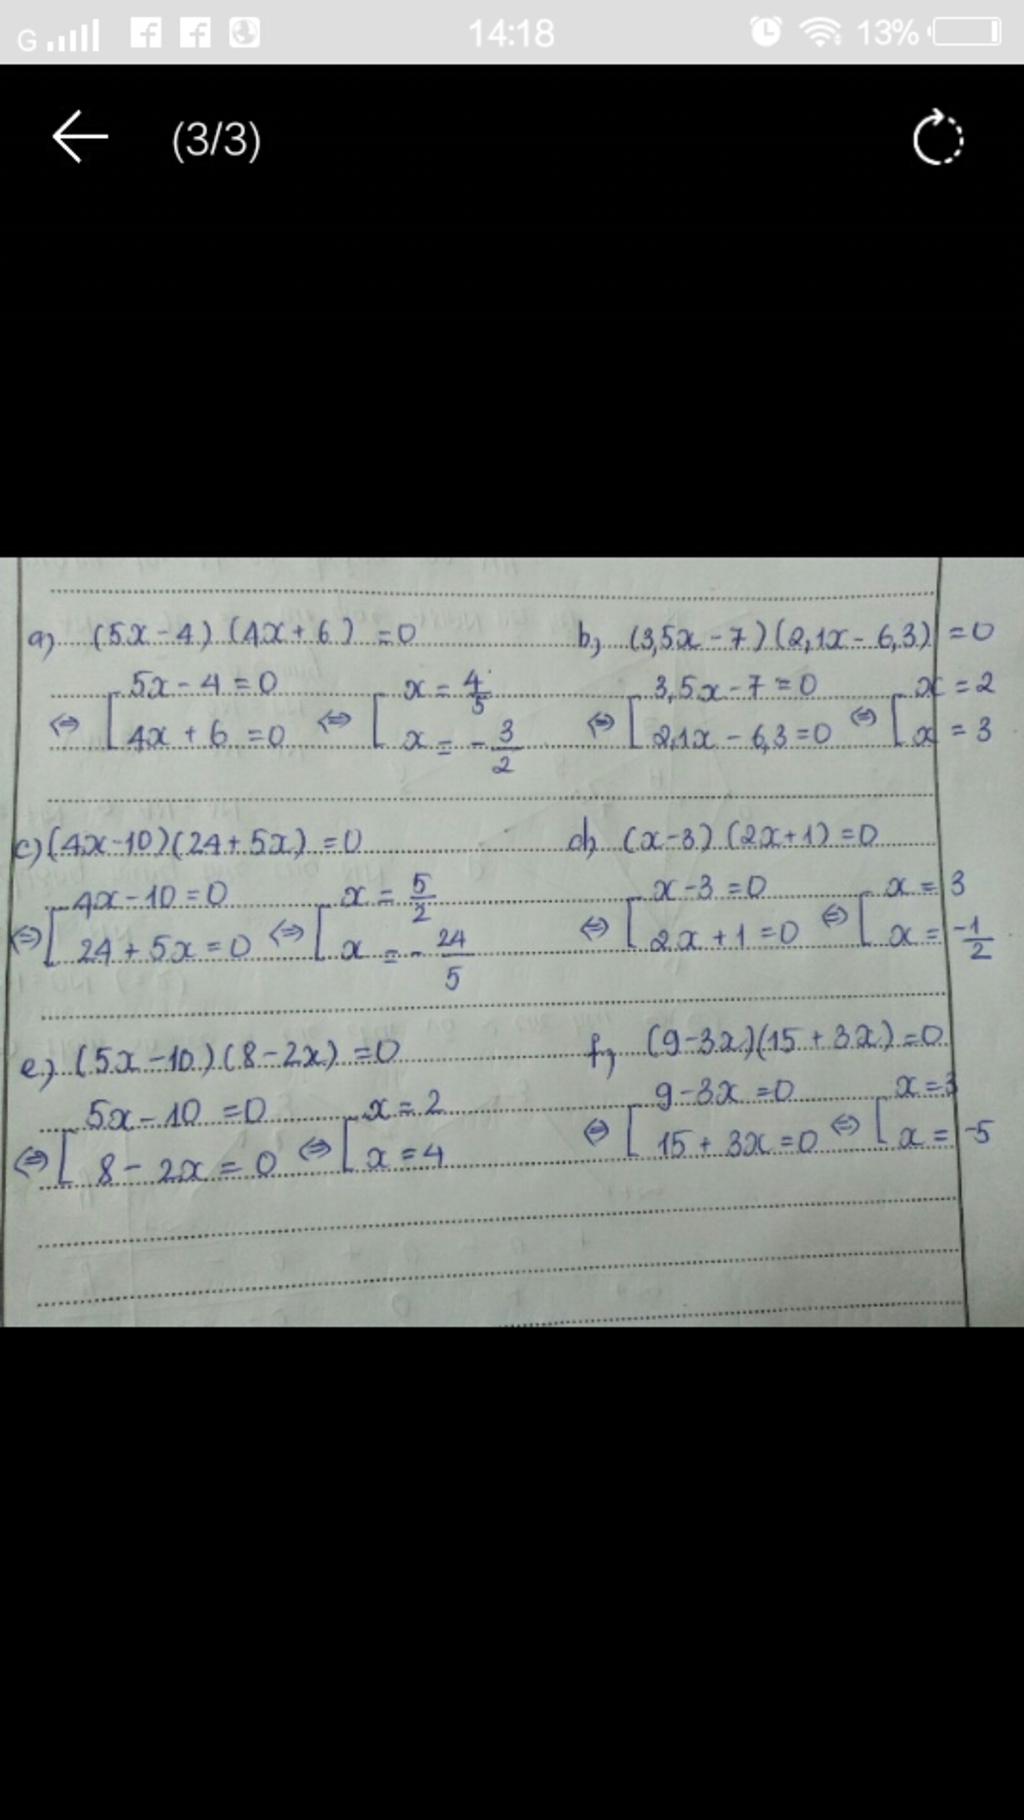 G 14:18 13%
(3/3)
a) (5x - 4) (4x + 6) = 0
⇔ [ 5x - 4 = 0
4x + 6 = 0 ⇔ [ x = 4/5
x = - 3/2
b) (3,5x - 7)(2,1x - 6,3) = 0
⇔ [ 3,5x - 7 = 0
2,1x - 6,3 = 0 ⇔ [ x = 2
x = 3
c) (4x - 10)(24 + 5x) = 0
⇔ [ 4x - 10 = 0
24 + 5x = 0 ⇔ [ x = 5/2
x = - 24/5
d) (x - 3) (2x + 1) = 0
⇔ [ x - 3 = 0
2x + 1 = 0 ⇔ [ x = 3
x = -1/2
e) (5x - 10) (8 - 2x) = 0
⇔ [ 5x - 10 = 0
8 - 2x = 0 ⇔ [ x = 2
x = 4
f) (9 - 3x)(15 + 3x) = 0
⇔ [ 9 - 3x = 0
15 + 3x = 0 ⇔ [ x = 3
x = -5